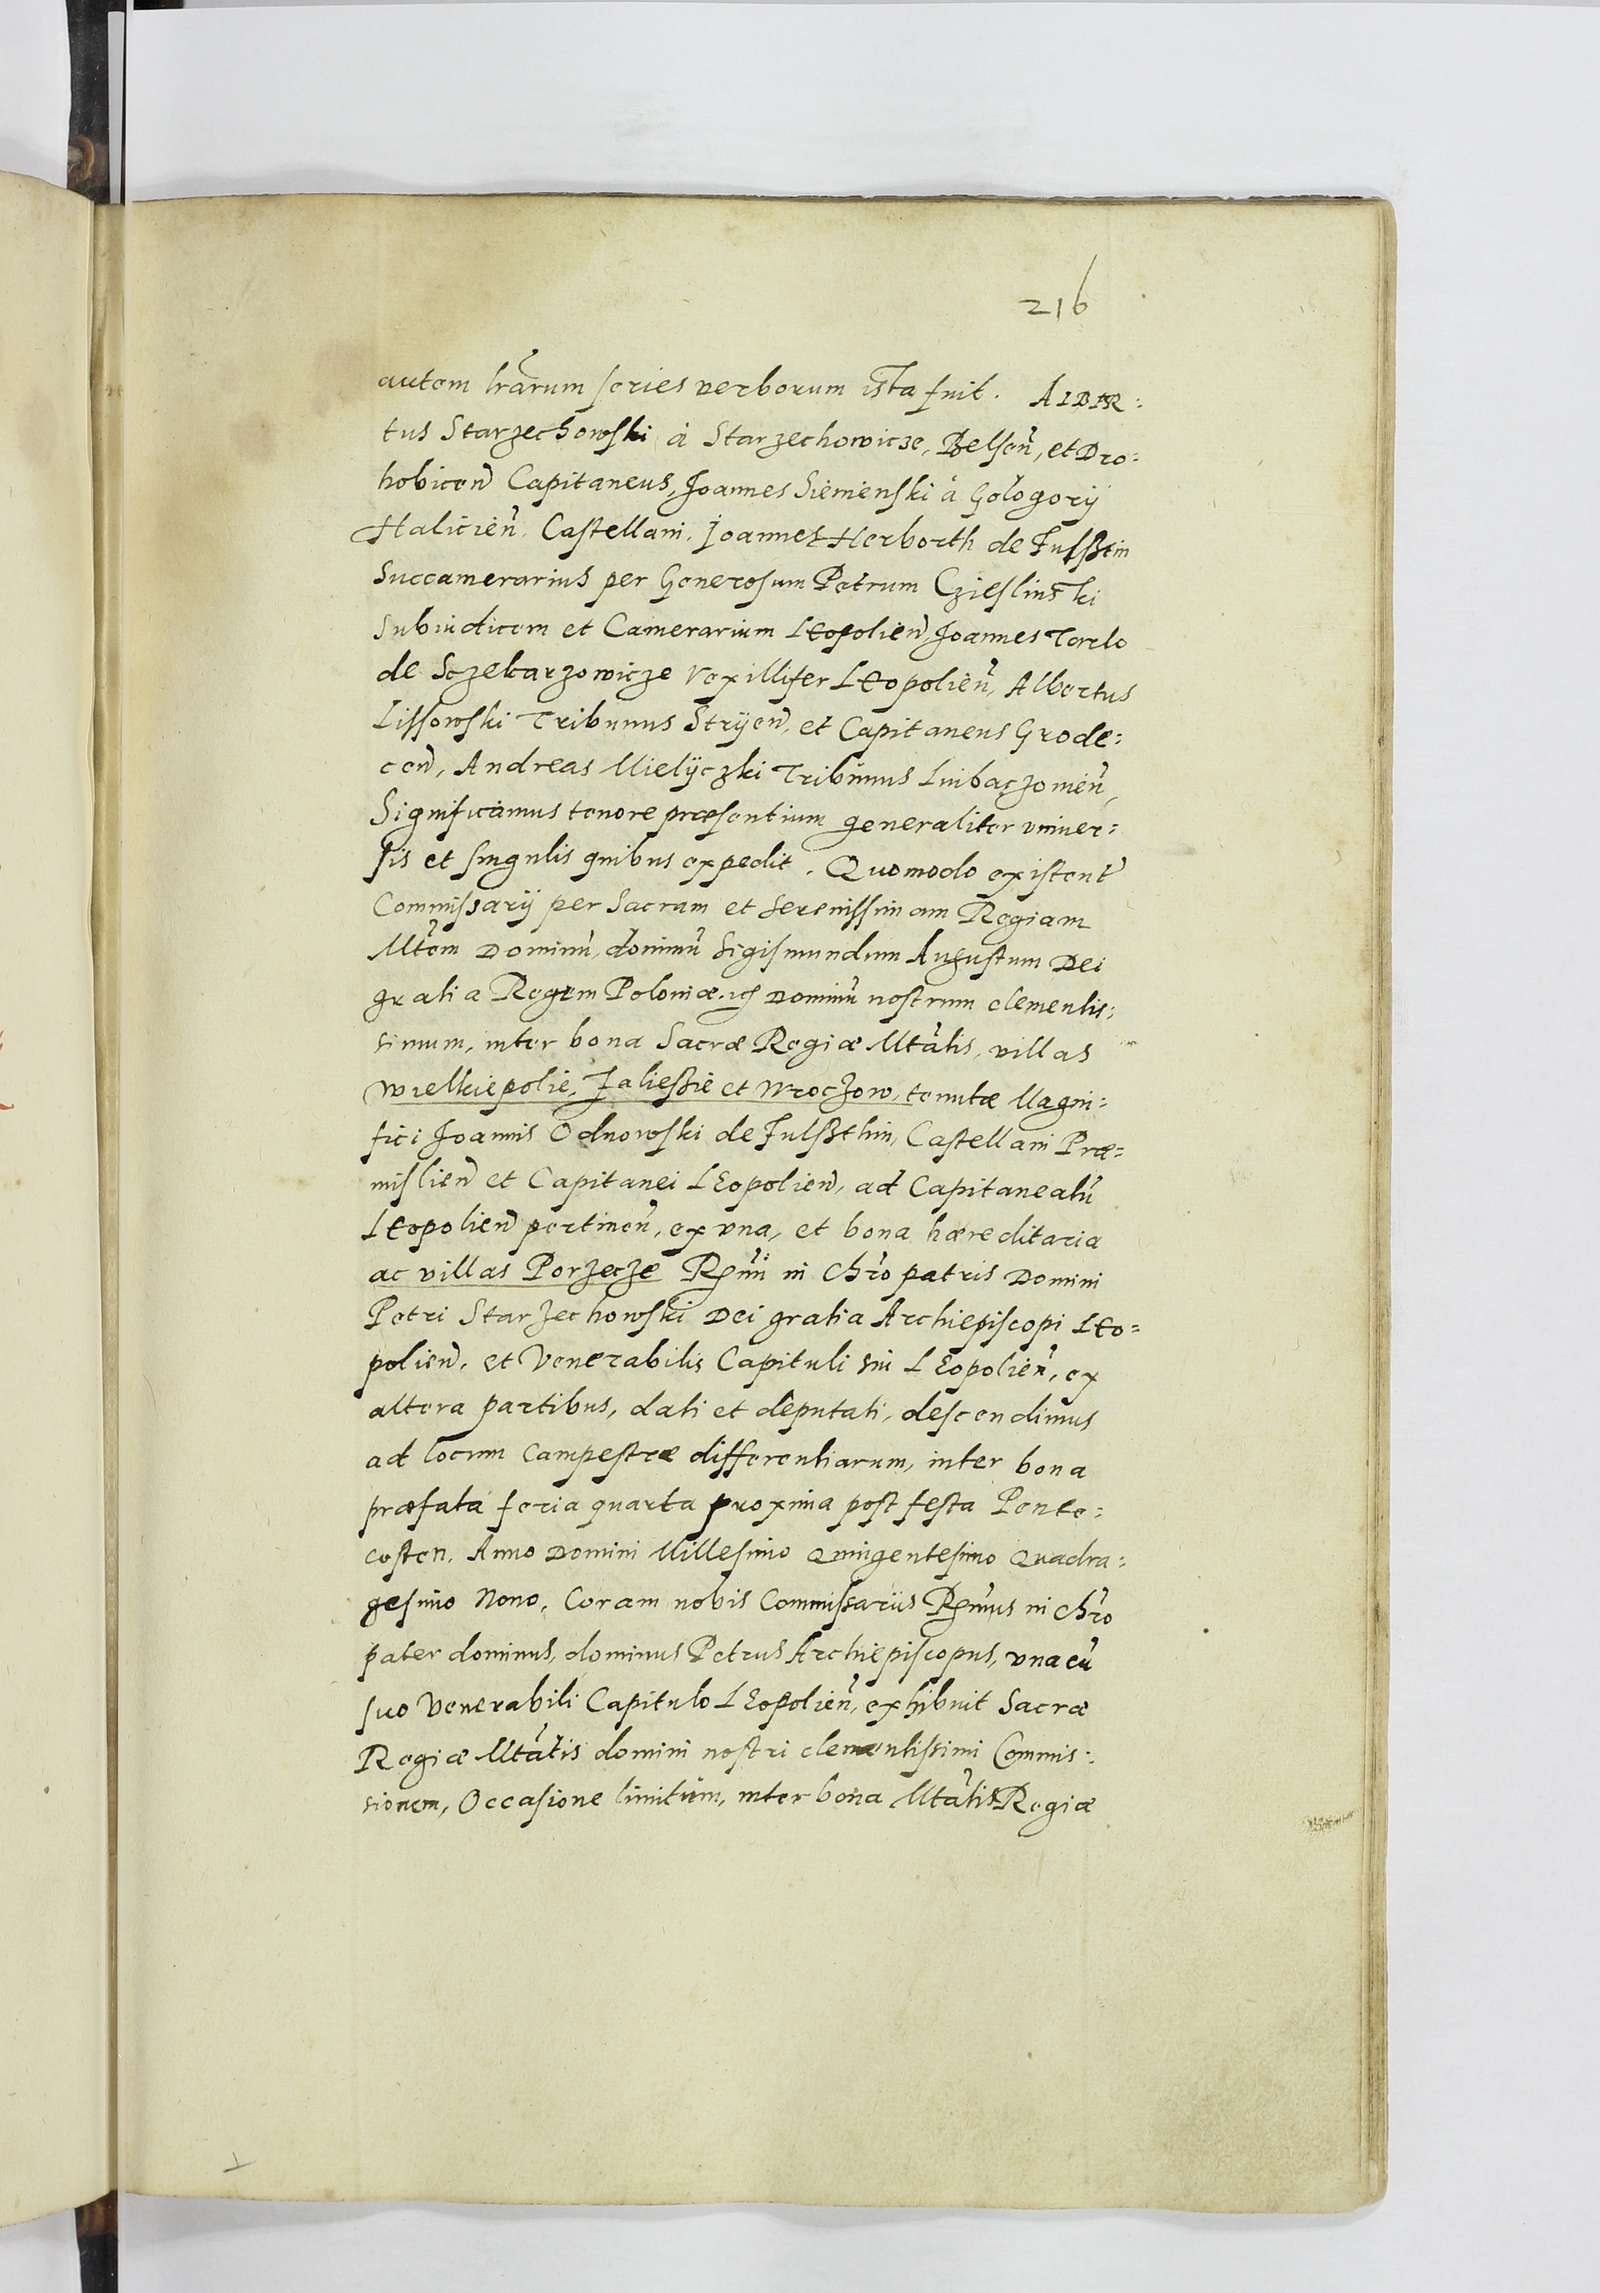 216
autem lr̃arum series verborum ista fuit. ALBER:
tus Starzechowski à Starzechowicze, Belsen̄, et Dro:
hobicen̄ Capitaneus, Joannes Siemienski à Gologorÿ
Halicien̄. Castellani. Joannes Herborth de Fulsztin
Succamerarius per Generosum Petrum Czieslinski
Subiudicem et Camerarium LEopolien̄, Joannes Tarlo
de Sczekarzowicze Vexillifer LEopolien̄, Albertus
Lissowski Tribunus Strÿen̄, et Capitaneus Grode:
cen̄, Andreas Mielÿczki Tribunus Lubaczowien̄,
Significamus tenore præsentium generaliter vniver:
sis et singulis quibus expedit. Quomodo existent̃
Commissarÿ per Sacram et Serenissimam Regiam
Mt̃em Dominū, dominū Sigismundum Augustum Dei
gratia Regem Poloniæ. &c Dominū nostrum clementis:
simum, inter bona Sacræ Regiæ Mtãtis, villas
Wielkiepolie, Zaliessie et Wroczow, tenutæ Magni:
fici Joannis Odnowski de Fulszthin, Castellani Præ:
mislien̄ et Capitanei LEopolien̄, ad Capitaneatū
LEopolien̄ pertinen̄, ex vna, et bona hæreditaria
ac villas Porzecze Rm̃i in Chr̃o patris Domini
Petri Starzechowski Dei gratia Archiepiscopi LEo:
polien̄. et Venerabilis Capituli sui LEopolien̄, ex
altera partibus, dati et deputati, descendimus
ad locum campestræ differentiarum, inter bona
præfata feria quarta proxima post festa Pente:
costen. Anno Domini Millesimo Quingentesimo Quadra:
gesimo Nono, Coram nobis Commissariis Rm̃us in Chr̃o
pater dominus, dominus Petrus Archiepiscopus, vna cū
suo Venerabili Capitulo LEopolien̄, exhibuit Sacræ
Regiæ Mtãtis domini nostri clementissimi Commis:
sionem, Occasione limitum, inter bona Mtãtis Regiæ